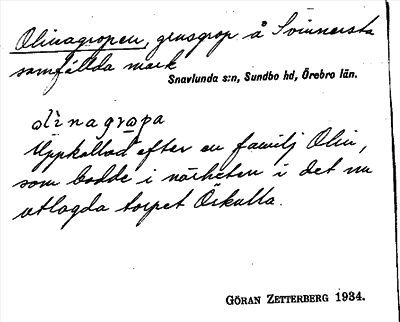 Olinagropen, grusgrop å Svinnersta
samfällda mark
Snavlunda s:n, Sundbo hd, Örebro län.
òlìnagrɷpa
Uppkallad efter en familj Olin,
som bodde i närheten i det nu
utlagda torpet Öskulla.
GÖRAN ZETTERBERG 1934.